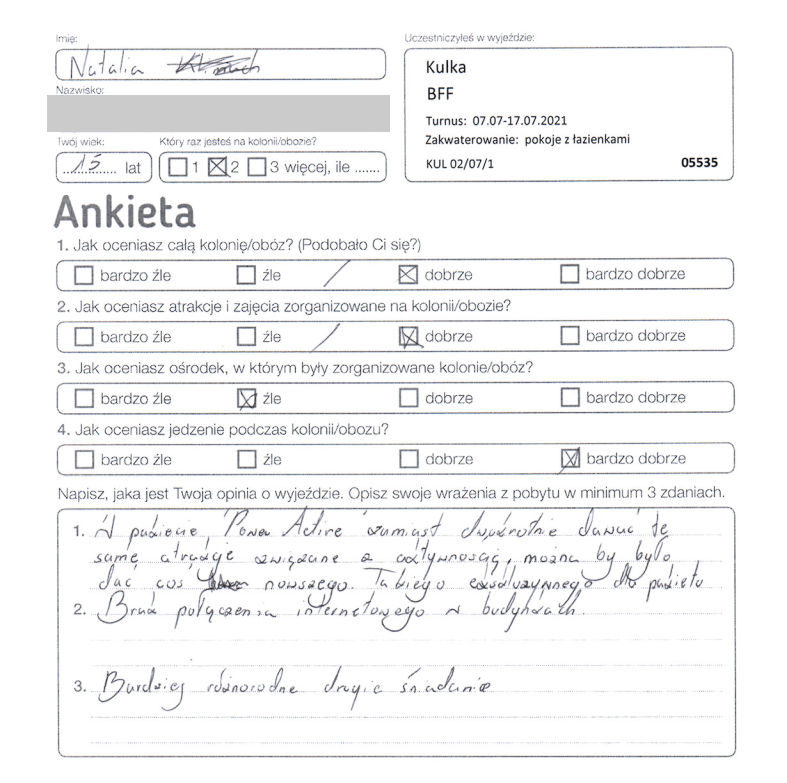 Imię:
Natalia
Nazwisko:
Twój wiek:
15 lat
Który raz jesteś na kolonii/obozie?
1 2 3 więcej, ile .......
Uczestniczyłeś w wyjeździe:
Kulka
BFF
Turnus: 07.07-17.07.2021
Zakwaterowanie: pokoje z łazienkami
KUL 02/07/1 05535
Ankieta
1. Jak oceniasz całą kolonię/obóz? (Podobało Ci się?)
bardzo źle źle dobrze bardzo dobrze
2. Jak oceniasz atrakcje i zajęcia zorganizowane na kolonii/obozie?
bardzo źle źle dobrze bardzo dobrze
3. Jak oceniasz ośrodek, w którym były zorganizowane kolonie/obóz?
bardzo źle źle dobrze bardzo dobrze
4. Jak oceniasz jedzenie podczas kolonii/obozu?
bardzo źle źle dobrze bardzo dobrze
Napisz, jaka jest Twoja opinia o wyjeździe. Opisz swoje wrażenia z pobytu w minimum 3 zdaniach.
1. W pakiecie "Power Active" zamiast dwukrotnie dawać te
same atrakcje związane z aktywnością, można by było
dać coś nowszego. Takiego ekskluzywnego dla pakietu
2. Brak połączenia internetowego w budynkach.
3. Bardziej różnorodne drugie śniadanie